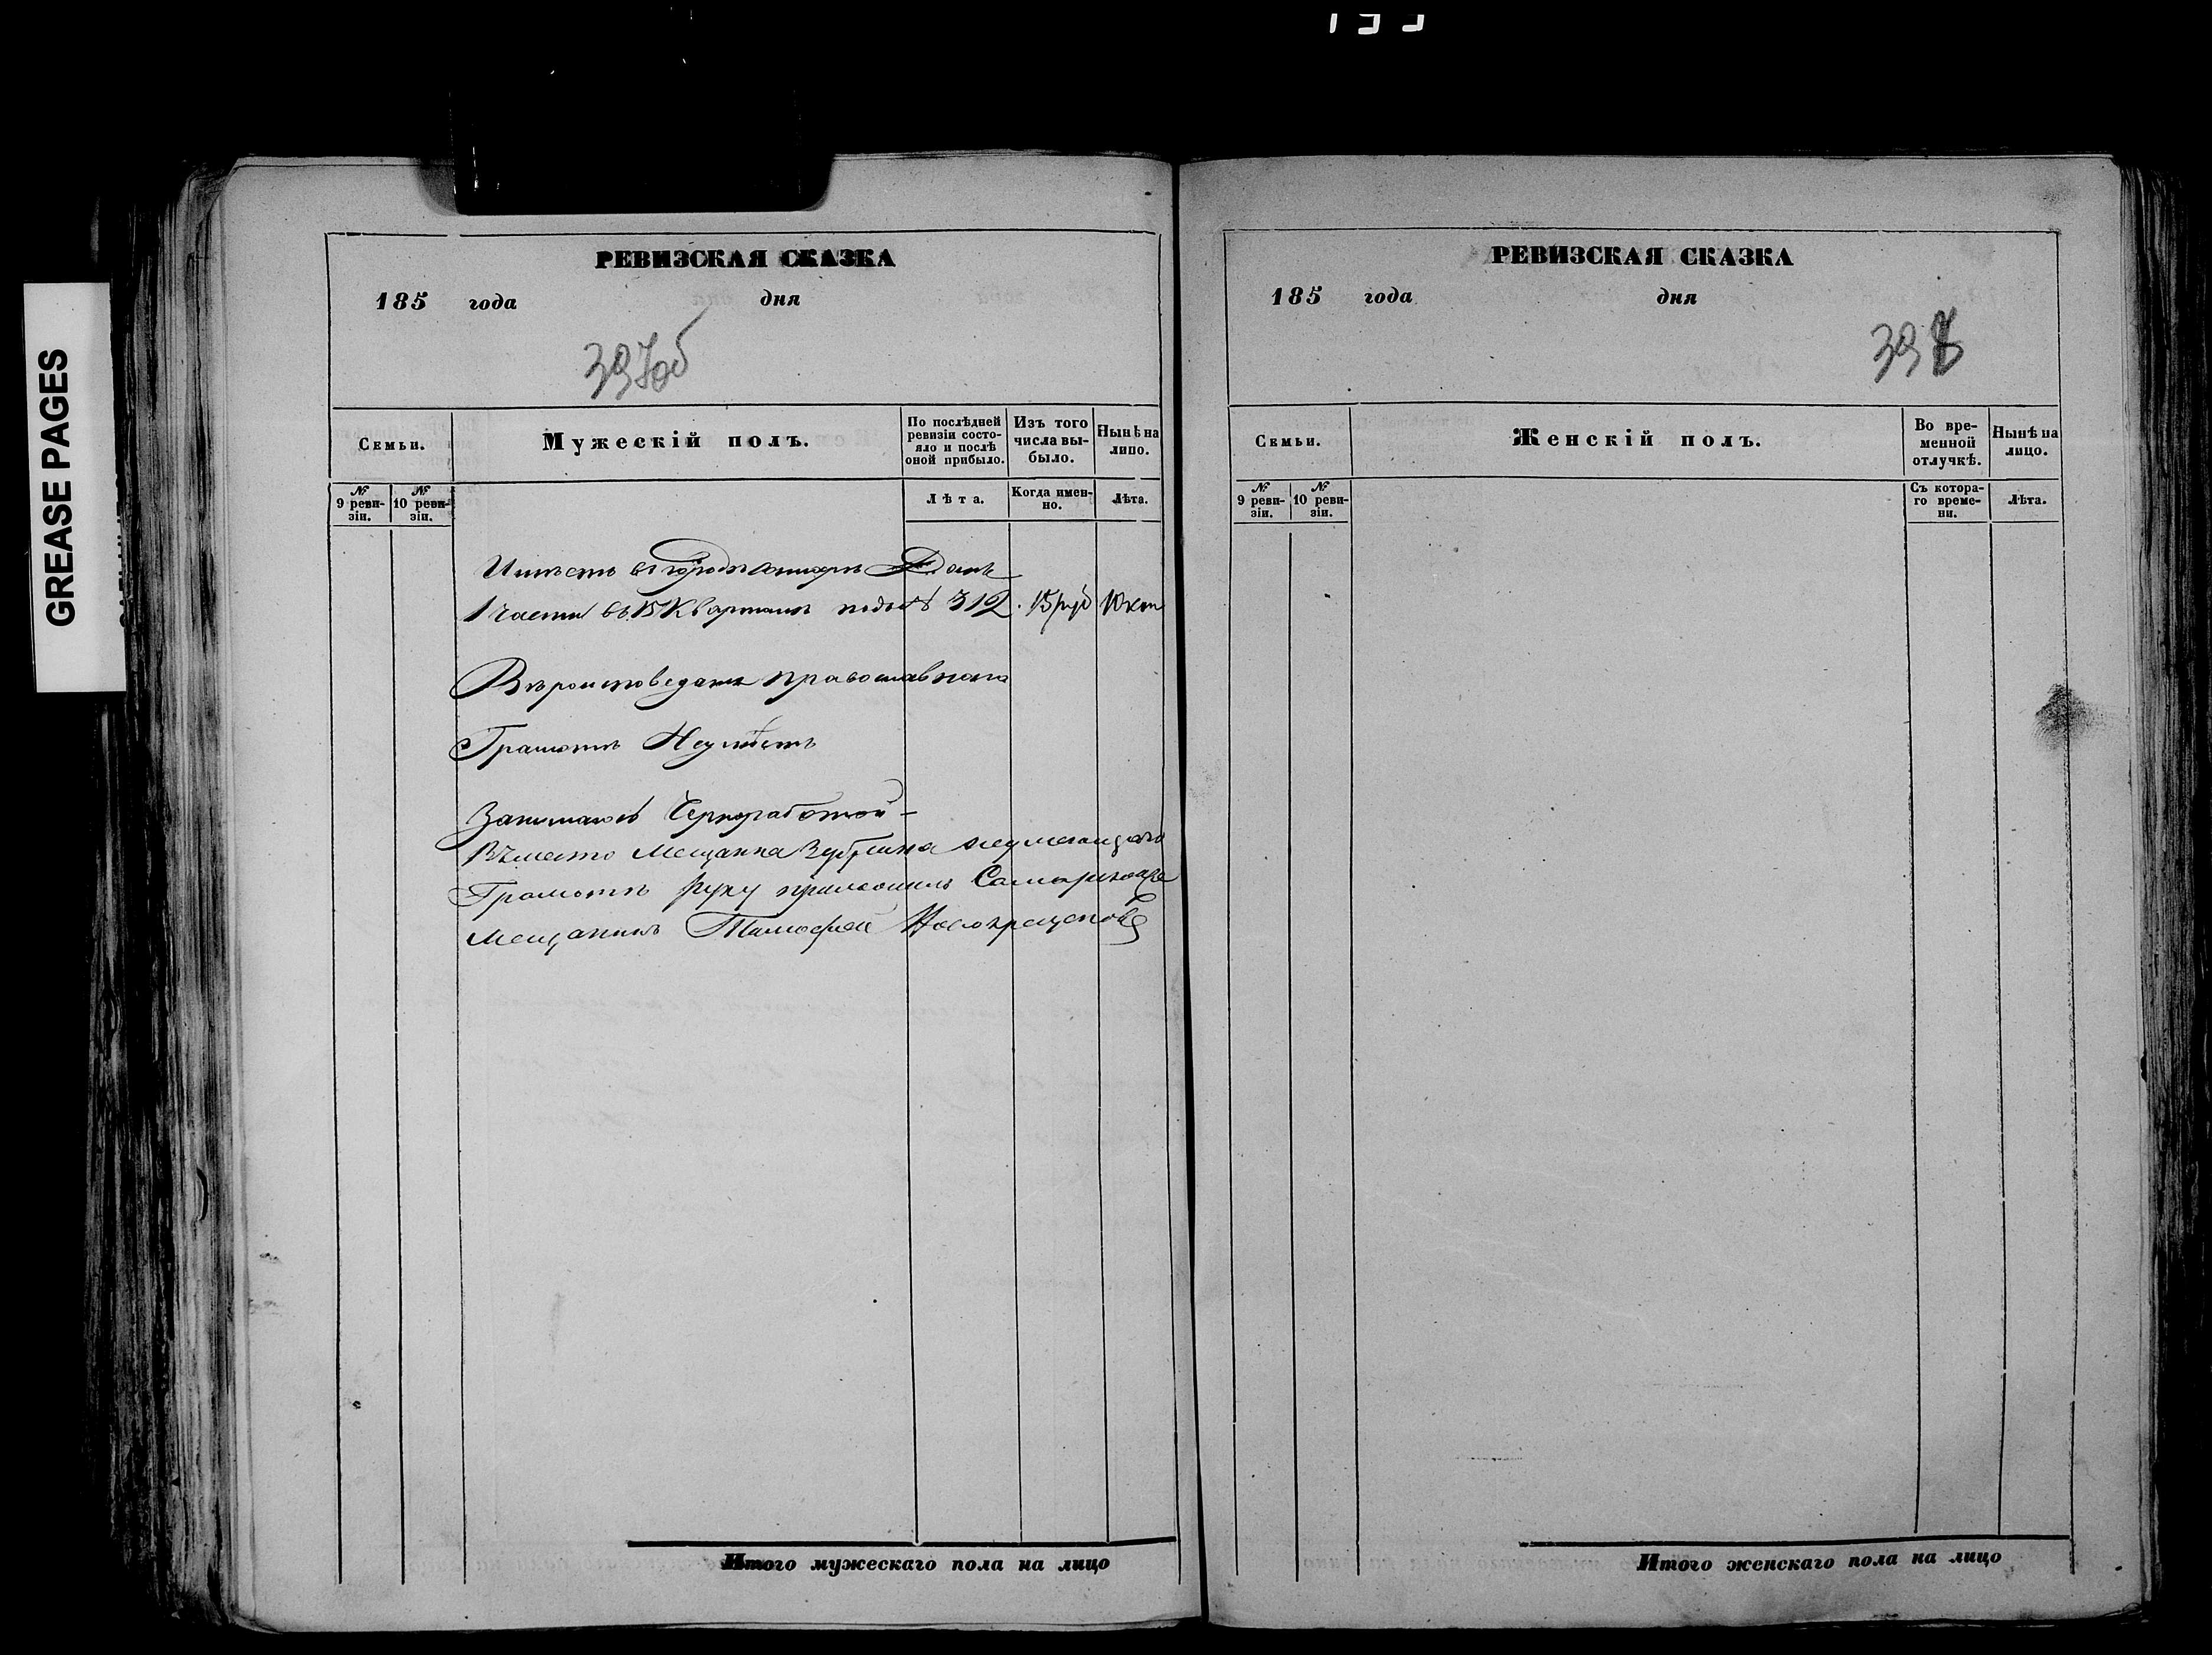 GREASE PAGES
РЕВИЗСКАЯ СКАЗКА
185 года дня
397об
Семьи.
Мужескій полъ.
По послѣдней ревизіи состояло и послѣ оной прибыло.
Изъ того числа выбыло.
Нынѣ на лицо.
№ 9 ревизіи.
№ 10 ревизіи.
Лѣта.
Когда именно.
Лѣта.
Имѣетъ въ городѣ Домъ
1 части въ 15 Кварталѣ подъ № 312. 15 руб 10 коп
Вѣроисповеданія православнаго
Грамотѣ Неумѣетъ
Черноработой
Вместо Мещанина неумеющаго
Грамотѣ руку приложилъ
Мещанинъ Тимофей Новокрещеновъ
Итого мужескаго пола на лицо
РЕВИЗСКАЯ СКАЗКА
185 года дня
398
Семьи.
Женскій полъ.
Во временной отлучкѣ.
Нынѣ на лицо.
№ 9 ревизіи.
№ 10 ревизіи.
Съ котораго времени.
Лѣта.
Итого женскаго пола на лицо